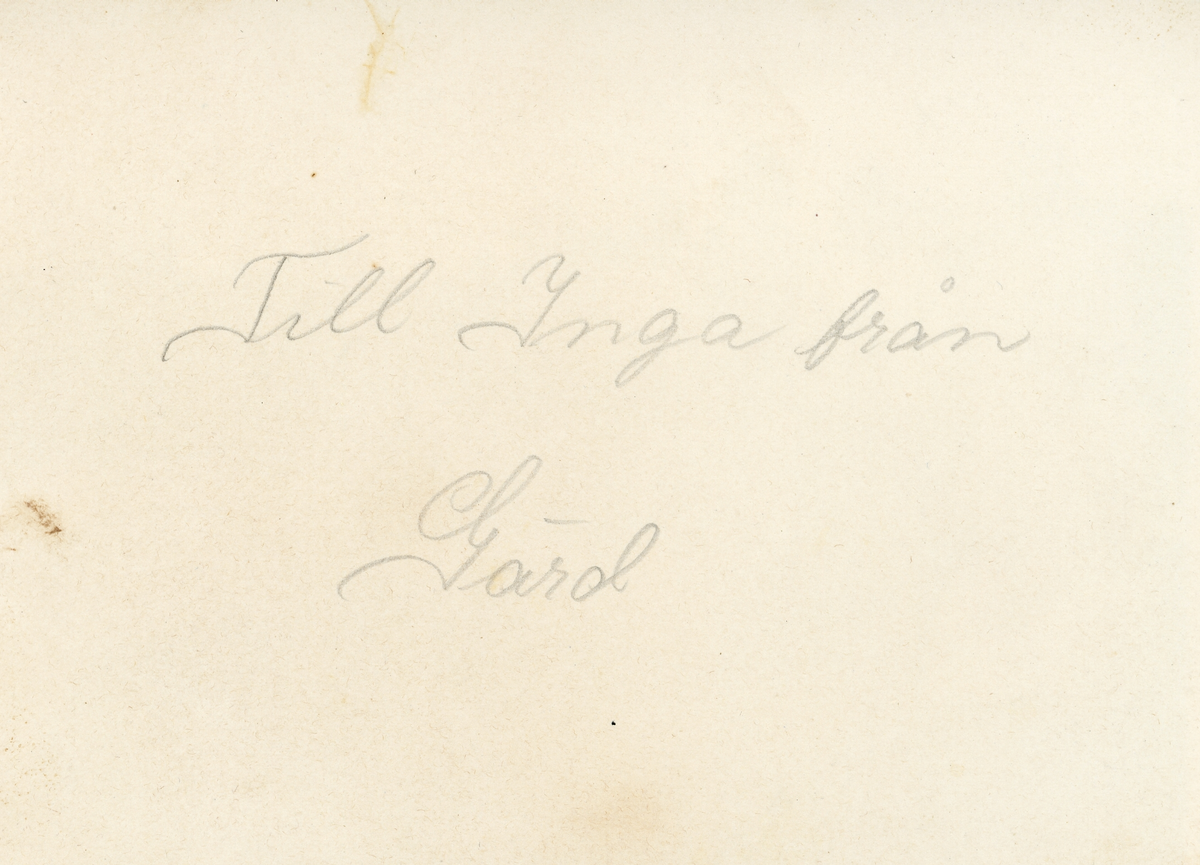 Till Inga från
Gärd